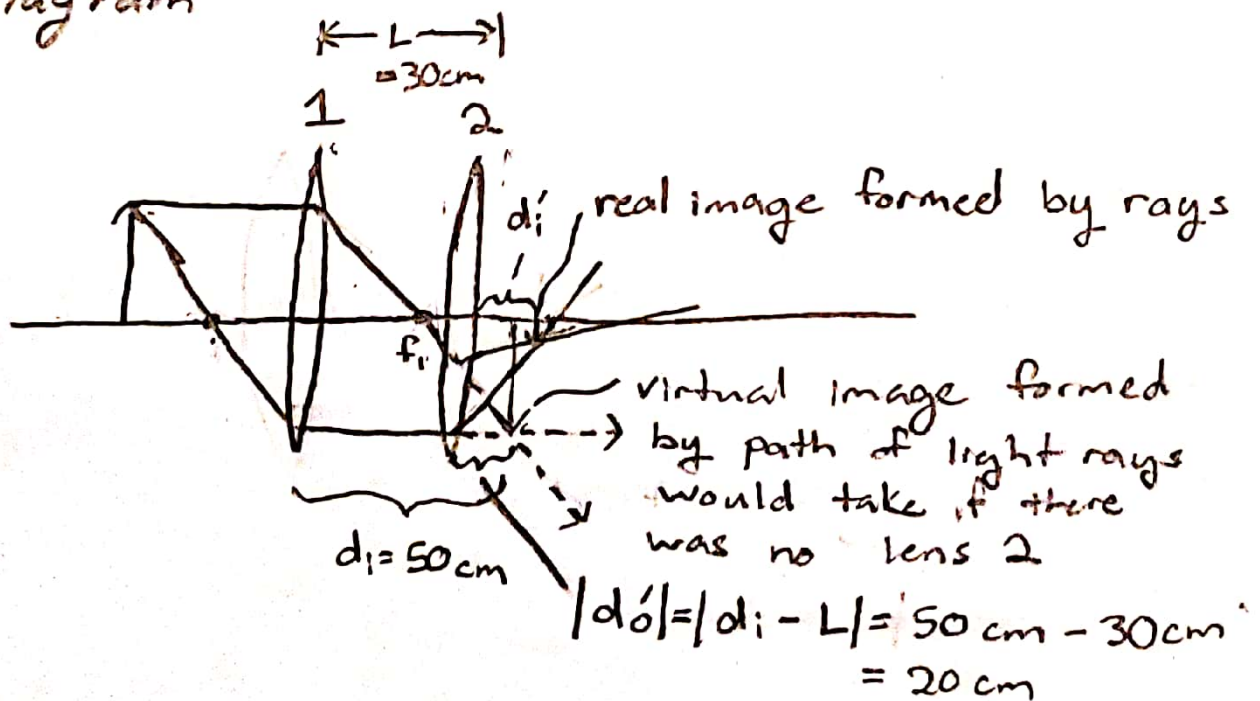 |← L →|
= 30cm
1
2
di′
real image formed by rays
f₁
virtual image formed
by path of light rays
would take if there
was no lens 2
di = 50 cm
|dó| = |di - L| = 50 cm - 30cm
= 20 cm